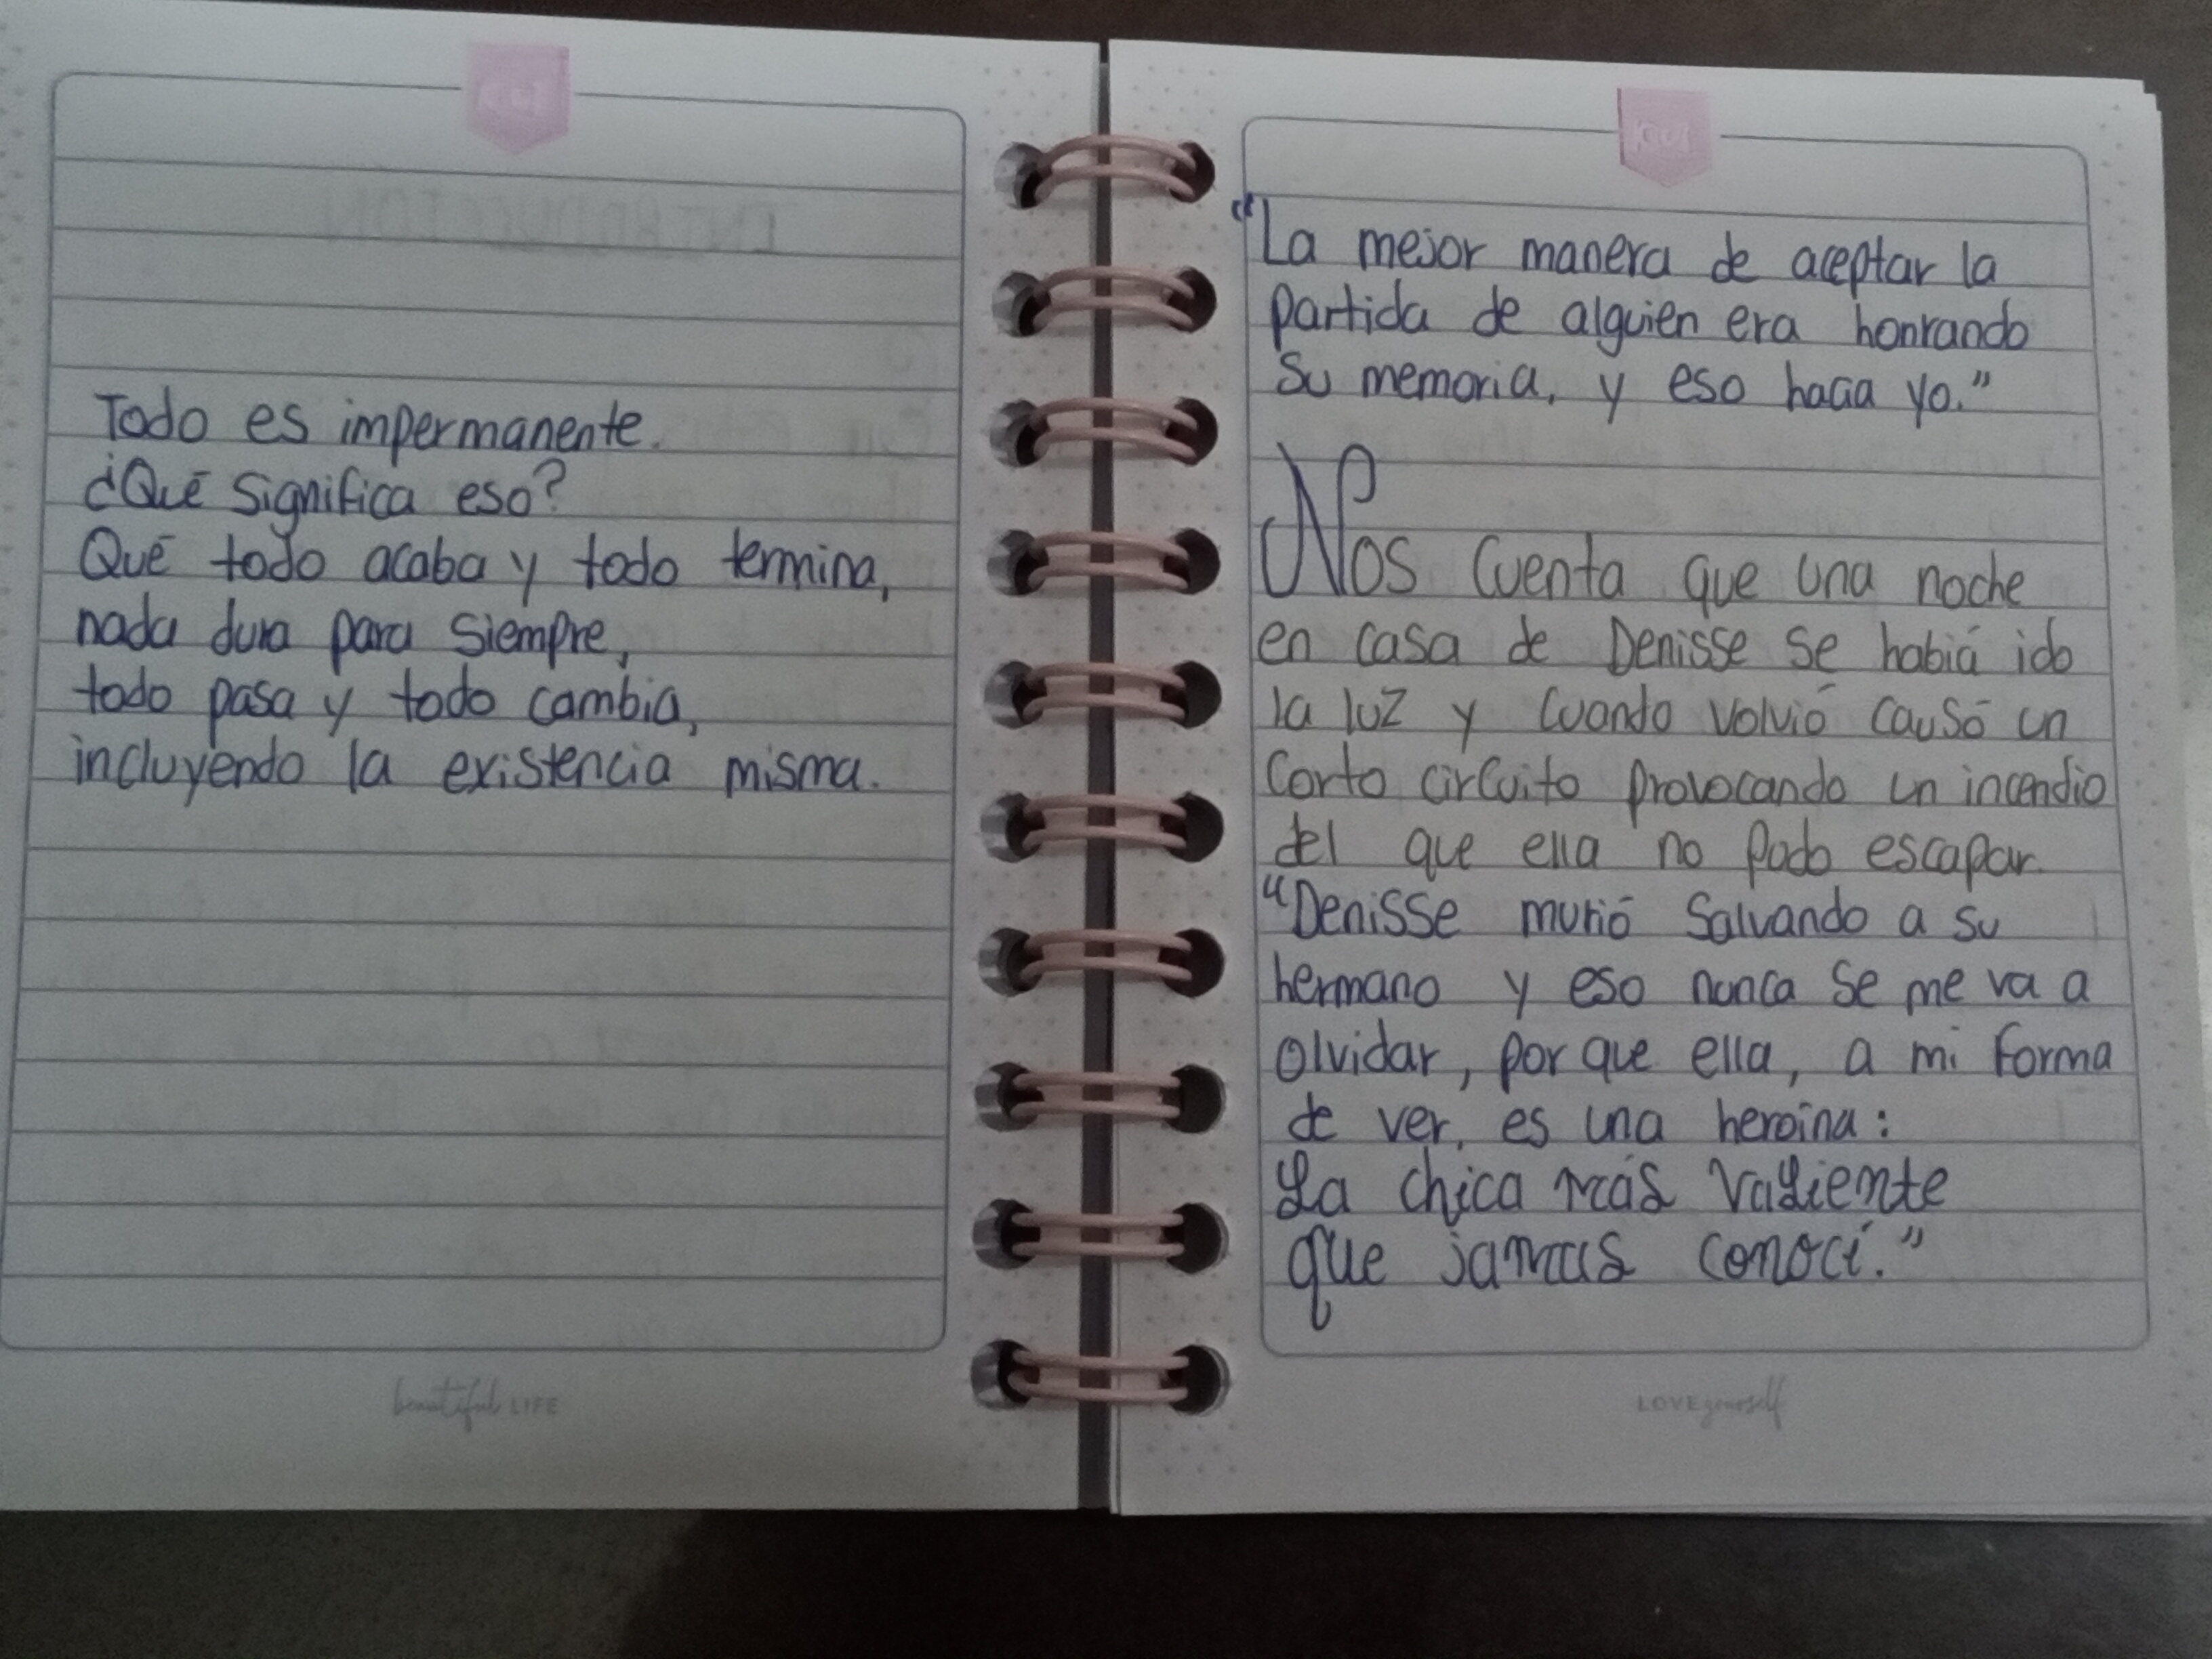 Todo es impermanente.
¿Qué significa eso?
Qué todo acaba y todo termina,
nada dura para siempre,
todo pasa y todo cambia,
incluyendo la existencia misma.
beautiful LIFE
"La mejor manera de aceptar la
partida de alguien era honrando
su memoria, y eso hacia yo."
Nos cuenta que una noche
en casa de Denisse se habiá ido
la luz y cuando volvió causó un
corto circuito provocando un incendio
del que ella no pudo escapar.
"Denisse murió salvando a su
hermano y eso nunca se me va a
olvidar, por que ella, a mi forma
de ver, es una heroína:
La chica más valiente
que jamas conocí."
LOVE yourself